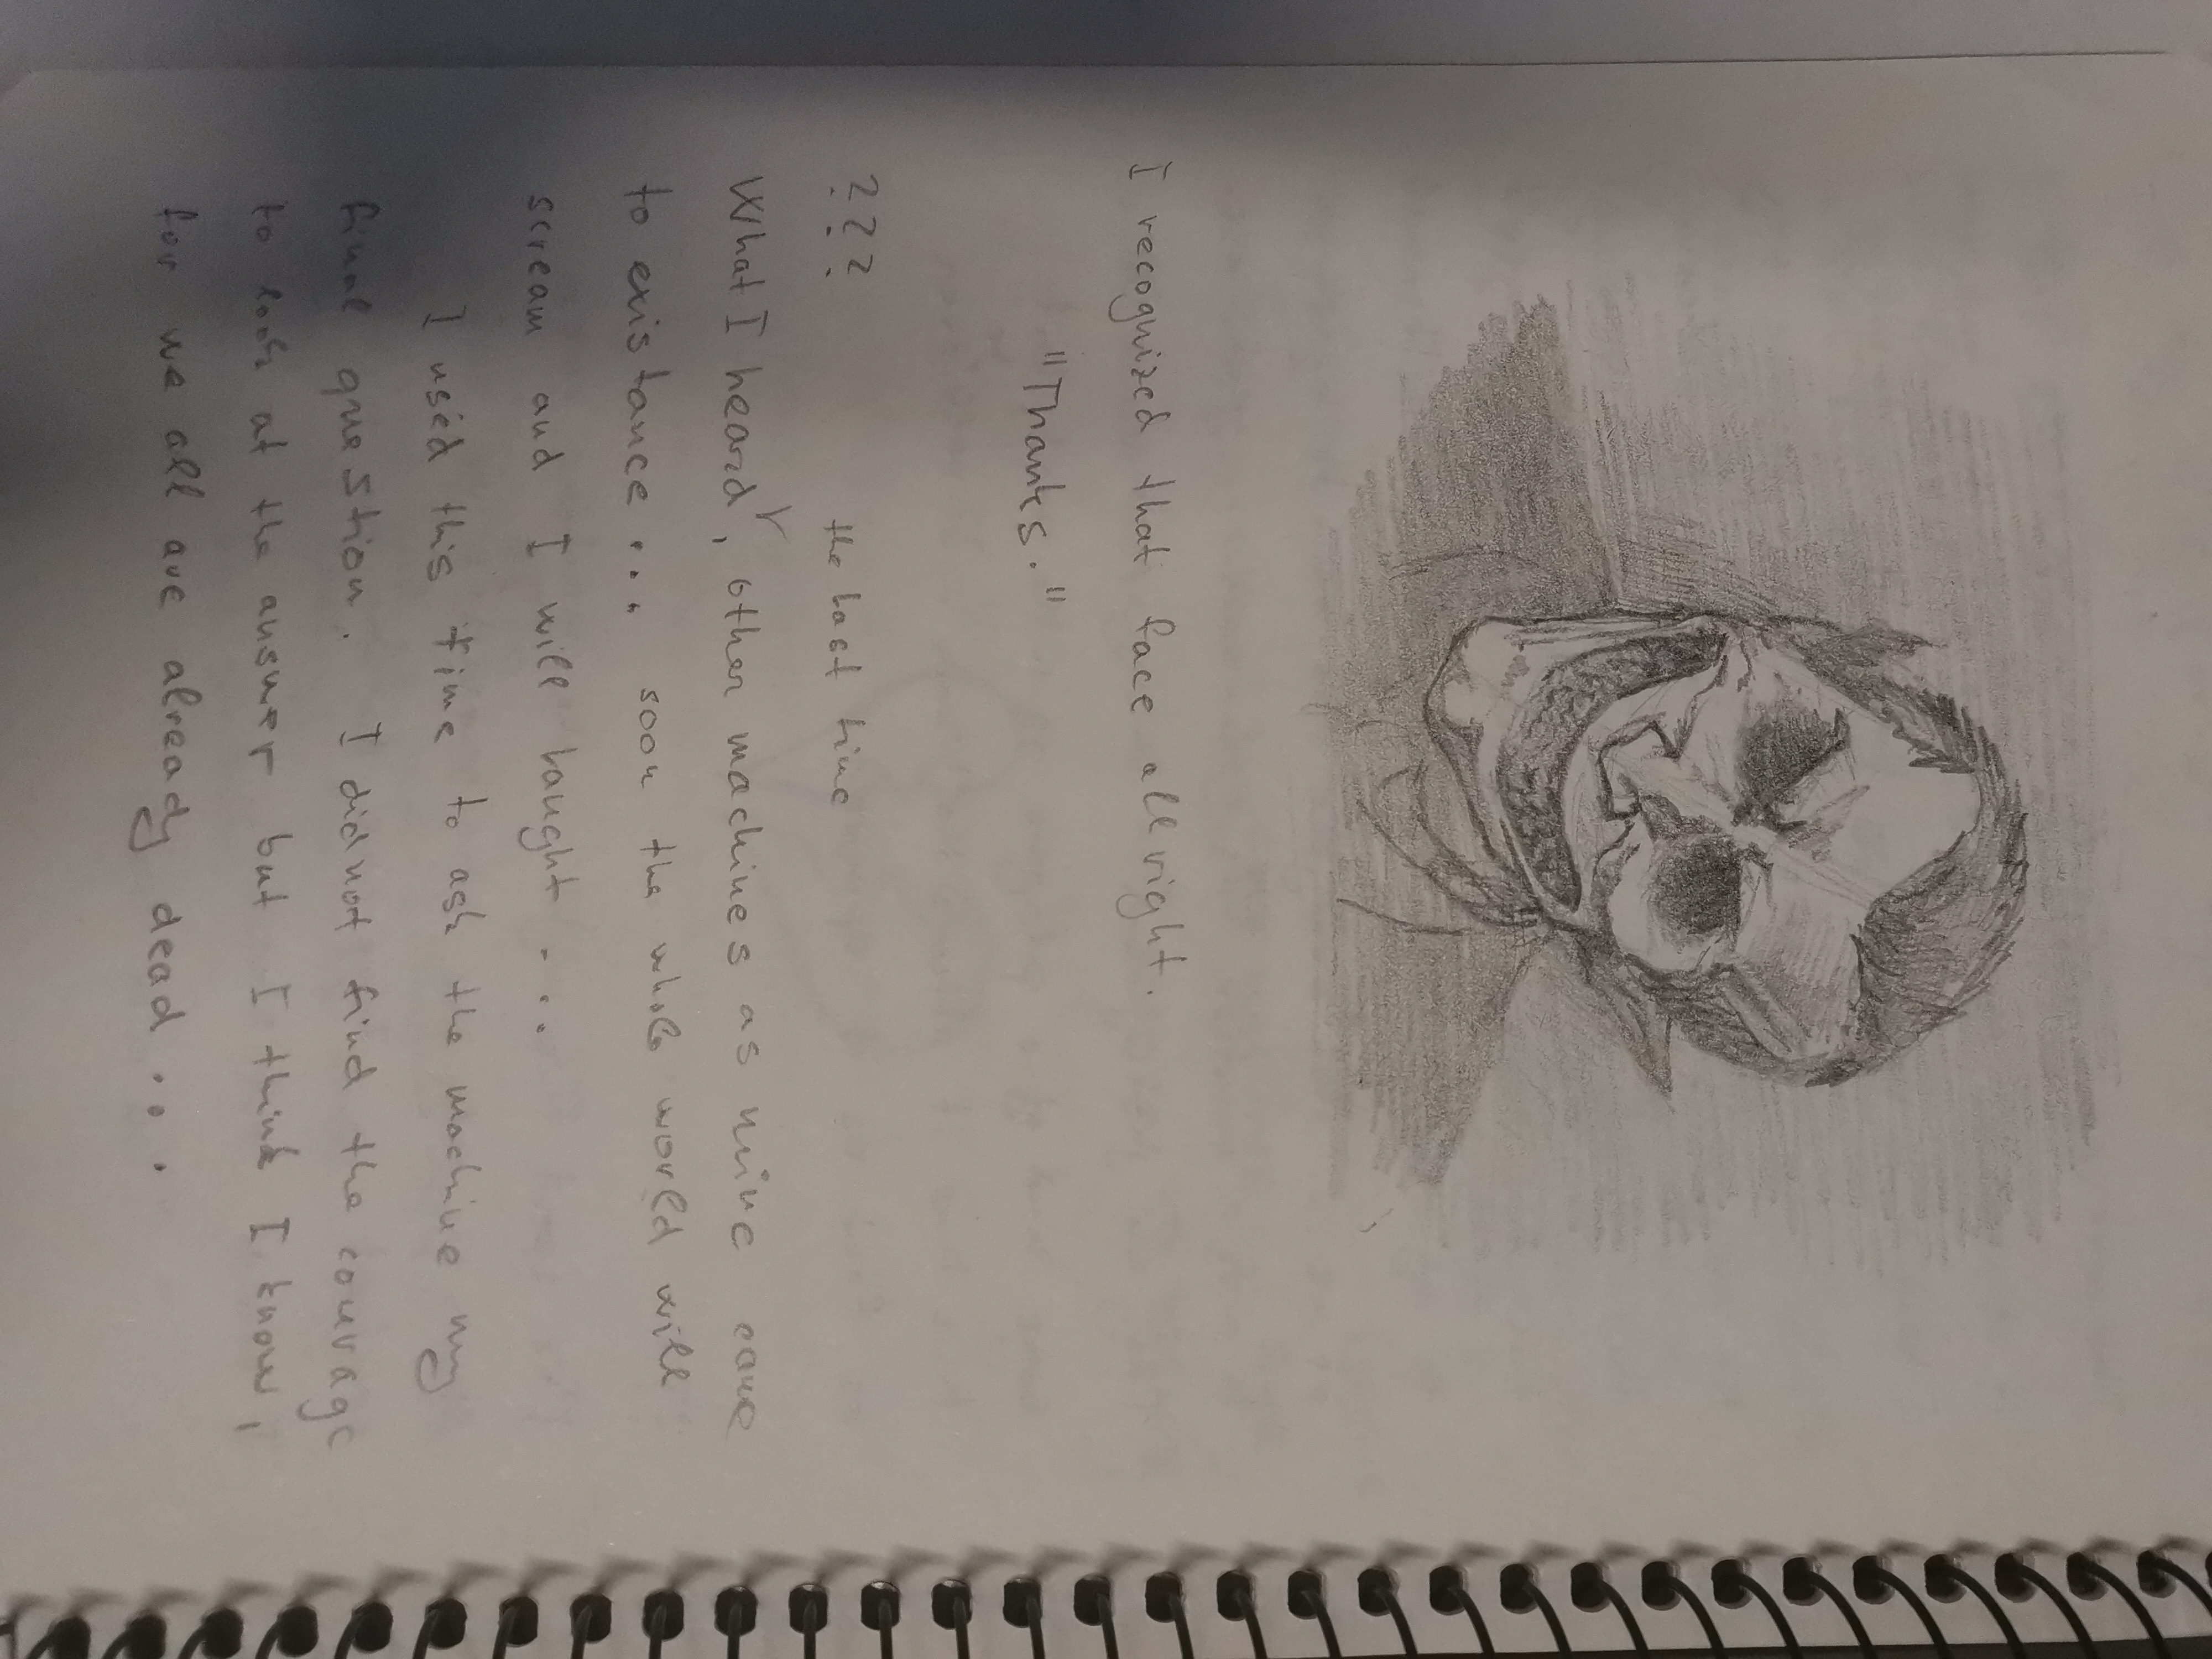 I recognized that face allright.
"Thanks."
???
the last time
What I heard, other machines as mine came
to existance ... soon the whole world will
scream and I will laught ...
I used this time to ask the machine my
final question. I did not find the courage
to look at the answer but I think I know,
for we all are already dead ...